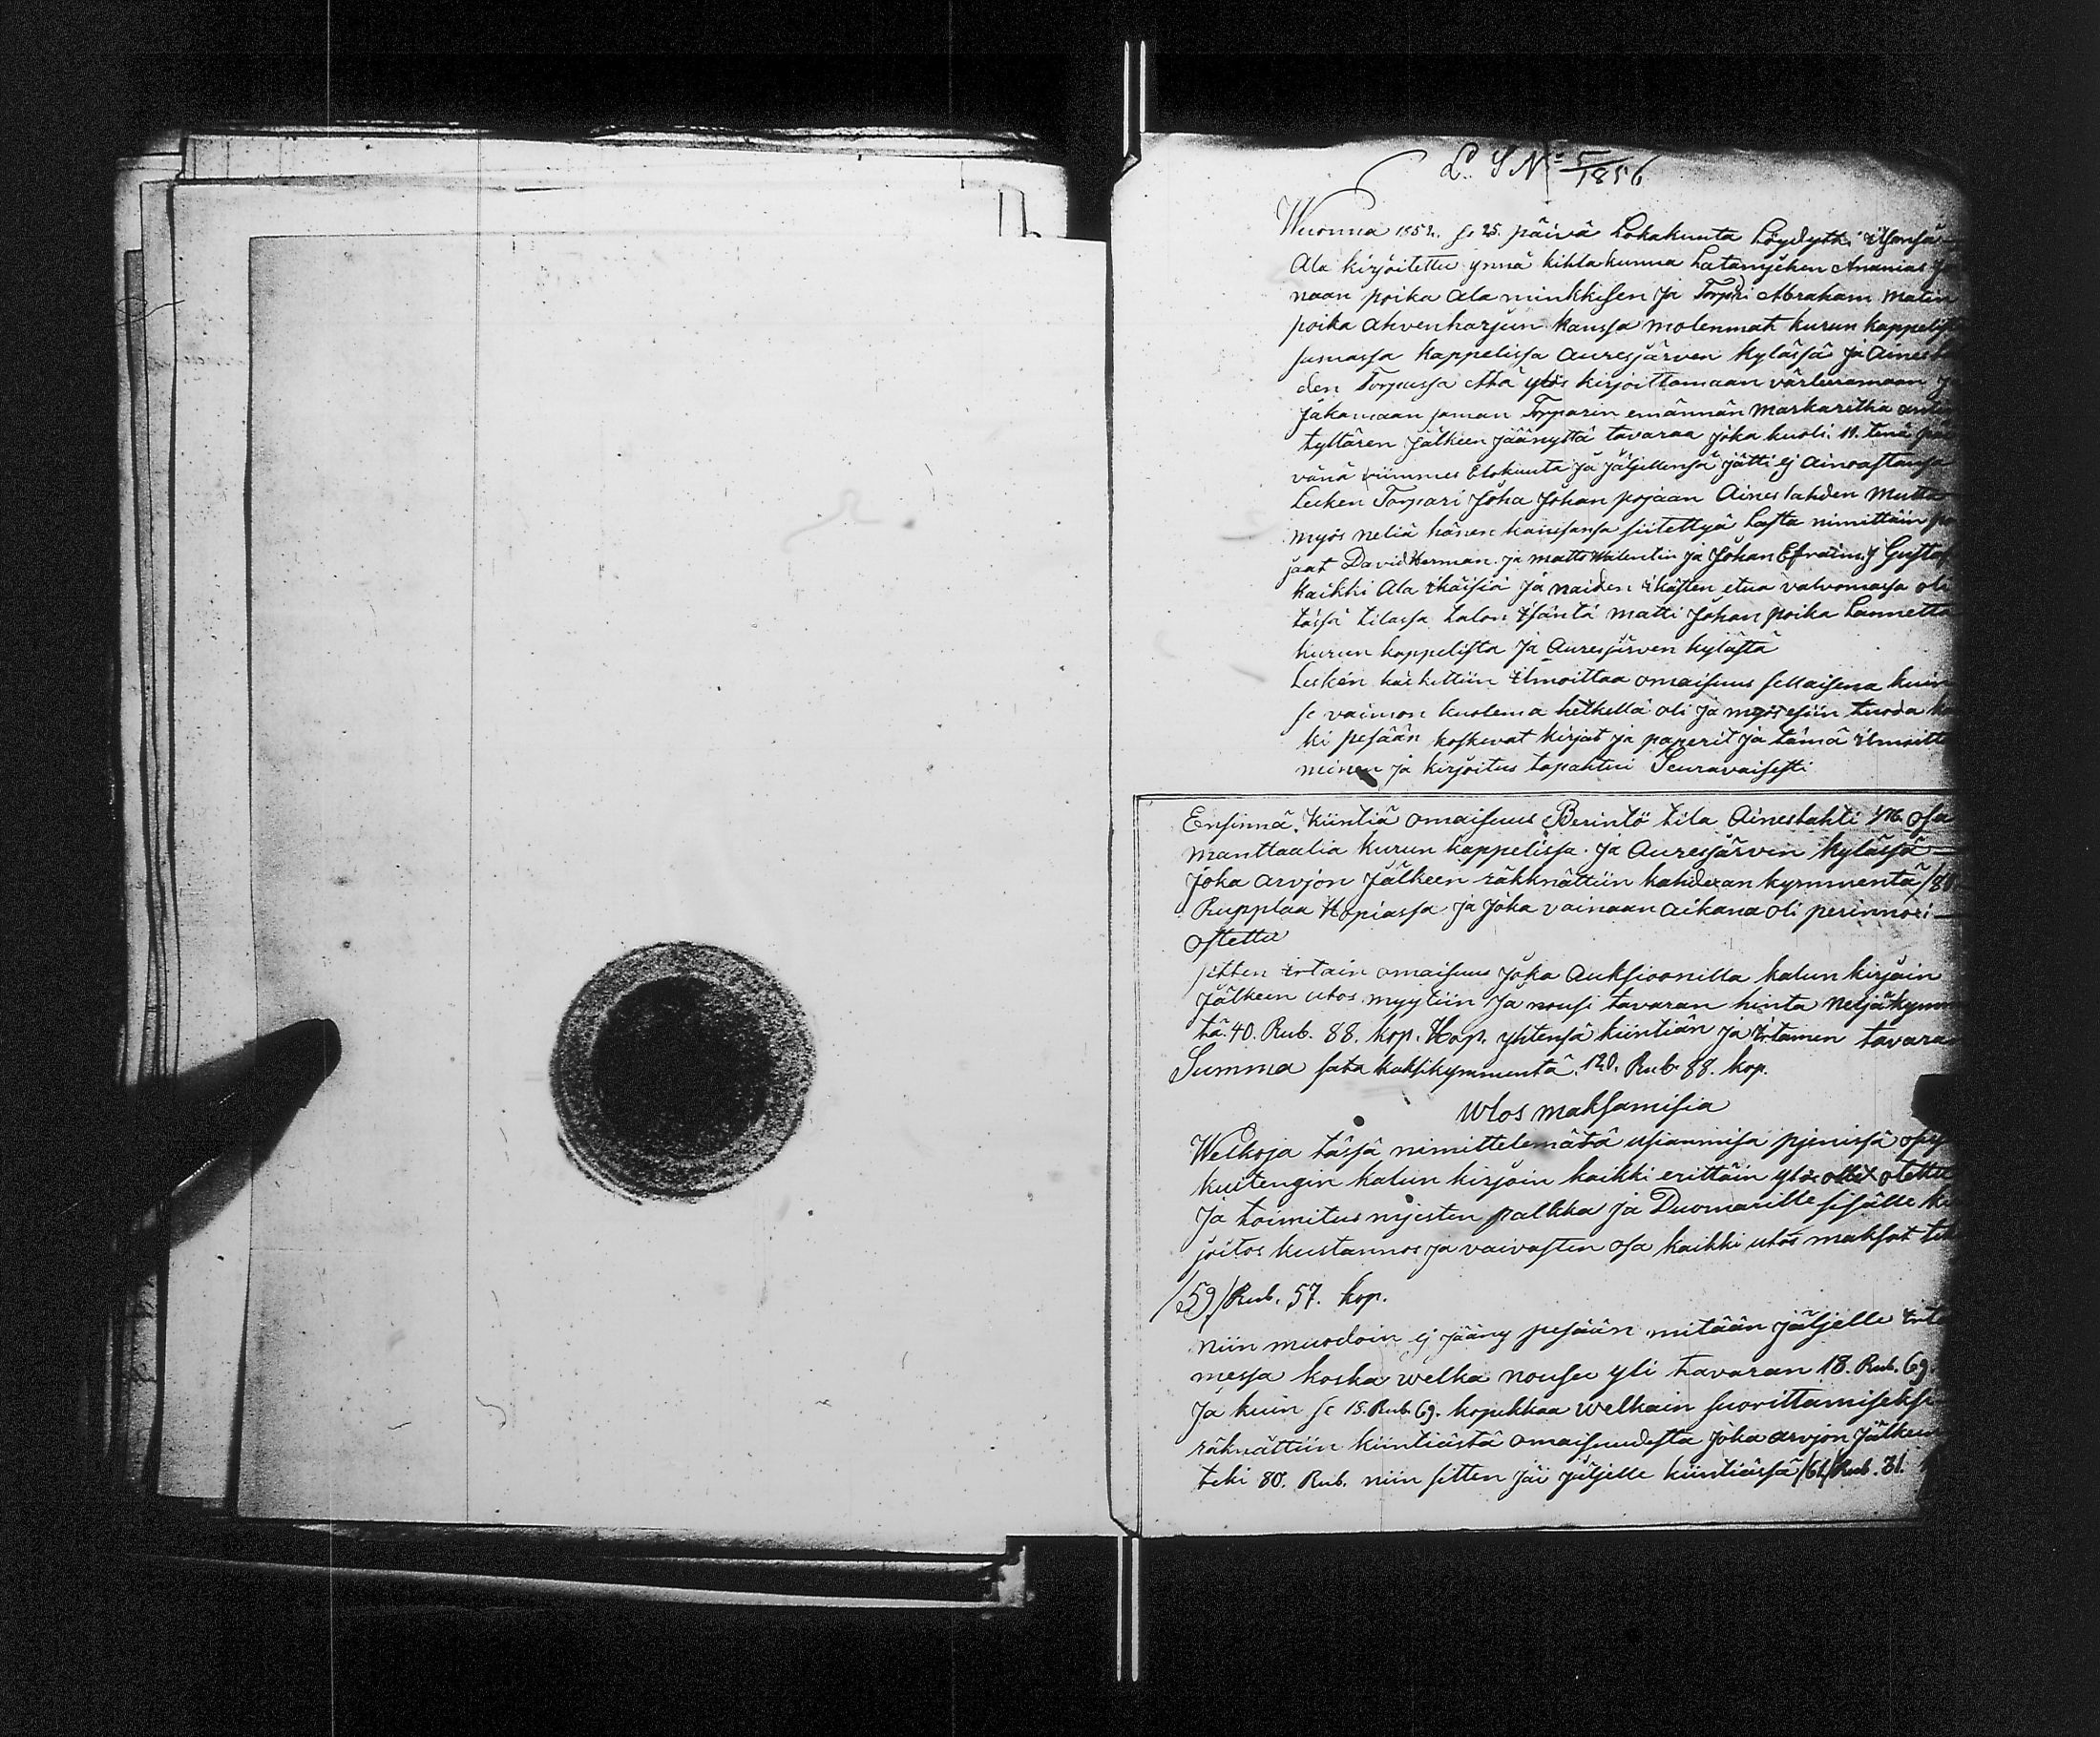 L. S N:o 5/1856
Wuonna 1852. se 25. päivä Lokakuuta Löydytti itsensä
Ala kirjoitettu ynnä kihlakunna Latamjehen Ananias
naan poika Ala minkkisen ja Torpri Abraham Matin
poika Ahvenharjun kanssa molenmat kurun kappelist
samassa kappelissa Auresjärven kylässä ja Aines
den Torpassa että ylös kirjoittamaan värleeramaan
Jakamaan saman Torparin emännän Markaritha antin
tyttären Jälkeen jäänyttä tavaraa joka kuoli. 11. tenä päi
vänä viimmes Elokuuta ja jäljellensä jätti ej Ainoastansa
Lesken Torpari Joha Johan pojaan Aineslahden Mutta
myös neliä hänen kanssansa siitettyä Lasta nimittäin po
jaat David Herman ja matts Walentin ja Johan Efraim, j Gustaf
kaikki Ala ikäisiä ja naiden ikästen etua valvomassa oli
tässä tilassa talon isäntä matti Johan poika Lannetta
kurun kappelista ja Auresjärven kylästä
Lesken käskettiin ilmoittaa omaisuus sellaisena kuin
se vaimon kuolema hetkellä oli ja myös esiin tuoda ka
ki pesään koskevat kirjat ja paperit ja tämä ilmoitta
minen ja kirjoitus tapahtui Seuravaisesti
Ensinnä. Kiintiä omaisuus Berintö tila Aineslahti 1/16 osa
manttaalia kurun kappelissa. ja Auresjärven kylässä
Joka arvjon Jälkeen räkknättiin kahdexan kymmentä /80
Rupplaa Hopiassa ja joka vainaan aikana oli perinnöxi
Ostettu
sitten irtain omaisuus joka Auksioonilla kalun kirjain
Jälkeen utos myytiin Ja nousi tavaran hinta neljäkymm
tä. 40. Rub. 88. kop. Hop. yhtensä kiintiän ja irtamen tavaran
Summa sata kaksikymmentä. 120. Rub. 88. kop.
Utos maksamisia
Welkoja tässä nimittelemätä usiammisa pjenissä osis
kuitengin kalun kirjoin kaikki erittäin ylös ottet otettu
Ja toimitus mjesten palkka ja Duomarille sisälle ki
joitos kustannos ja vaivasten osa kaikki utos maksot tek
/59/ Rub. 57. kop.
niin muodoin ej jääny pesään mitään jäljelle irta
messa koska welka nousee yli tavaran 18. Rub. 69.
Ja kuin se 18. Rub. 69. kopekkaa welkain suorittamiseksi
räknättiin kiintiästä omaisuudesta joka arvjon Jälkeen
teki 80. Rub. niin sitten jäi jäljelle kiintiässä /61/ Rub. 31.